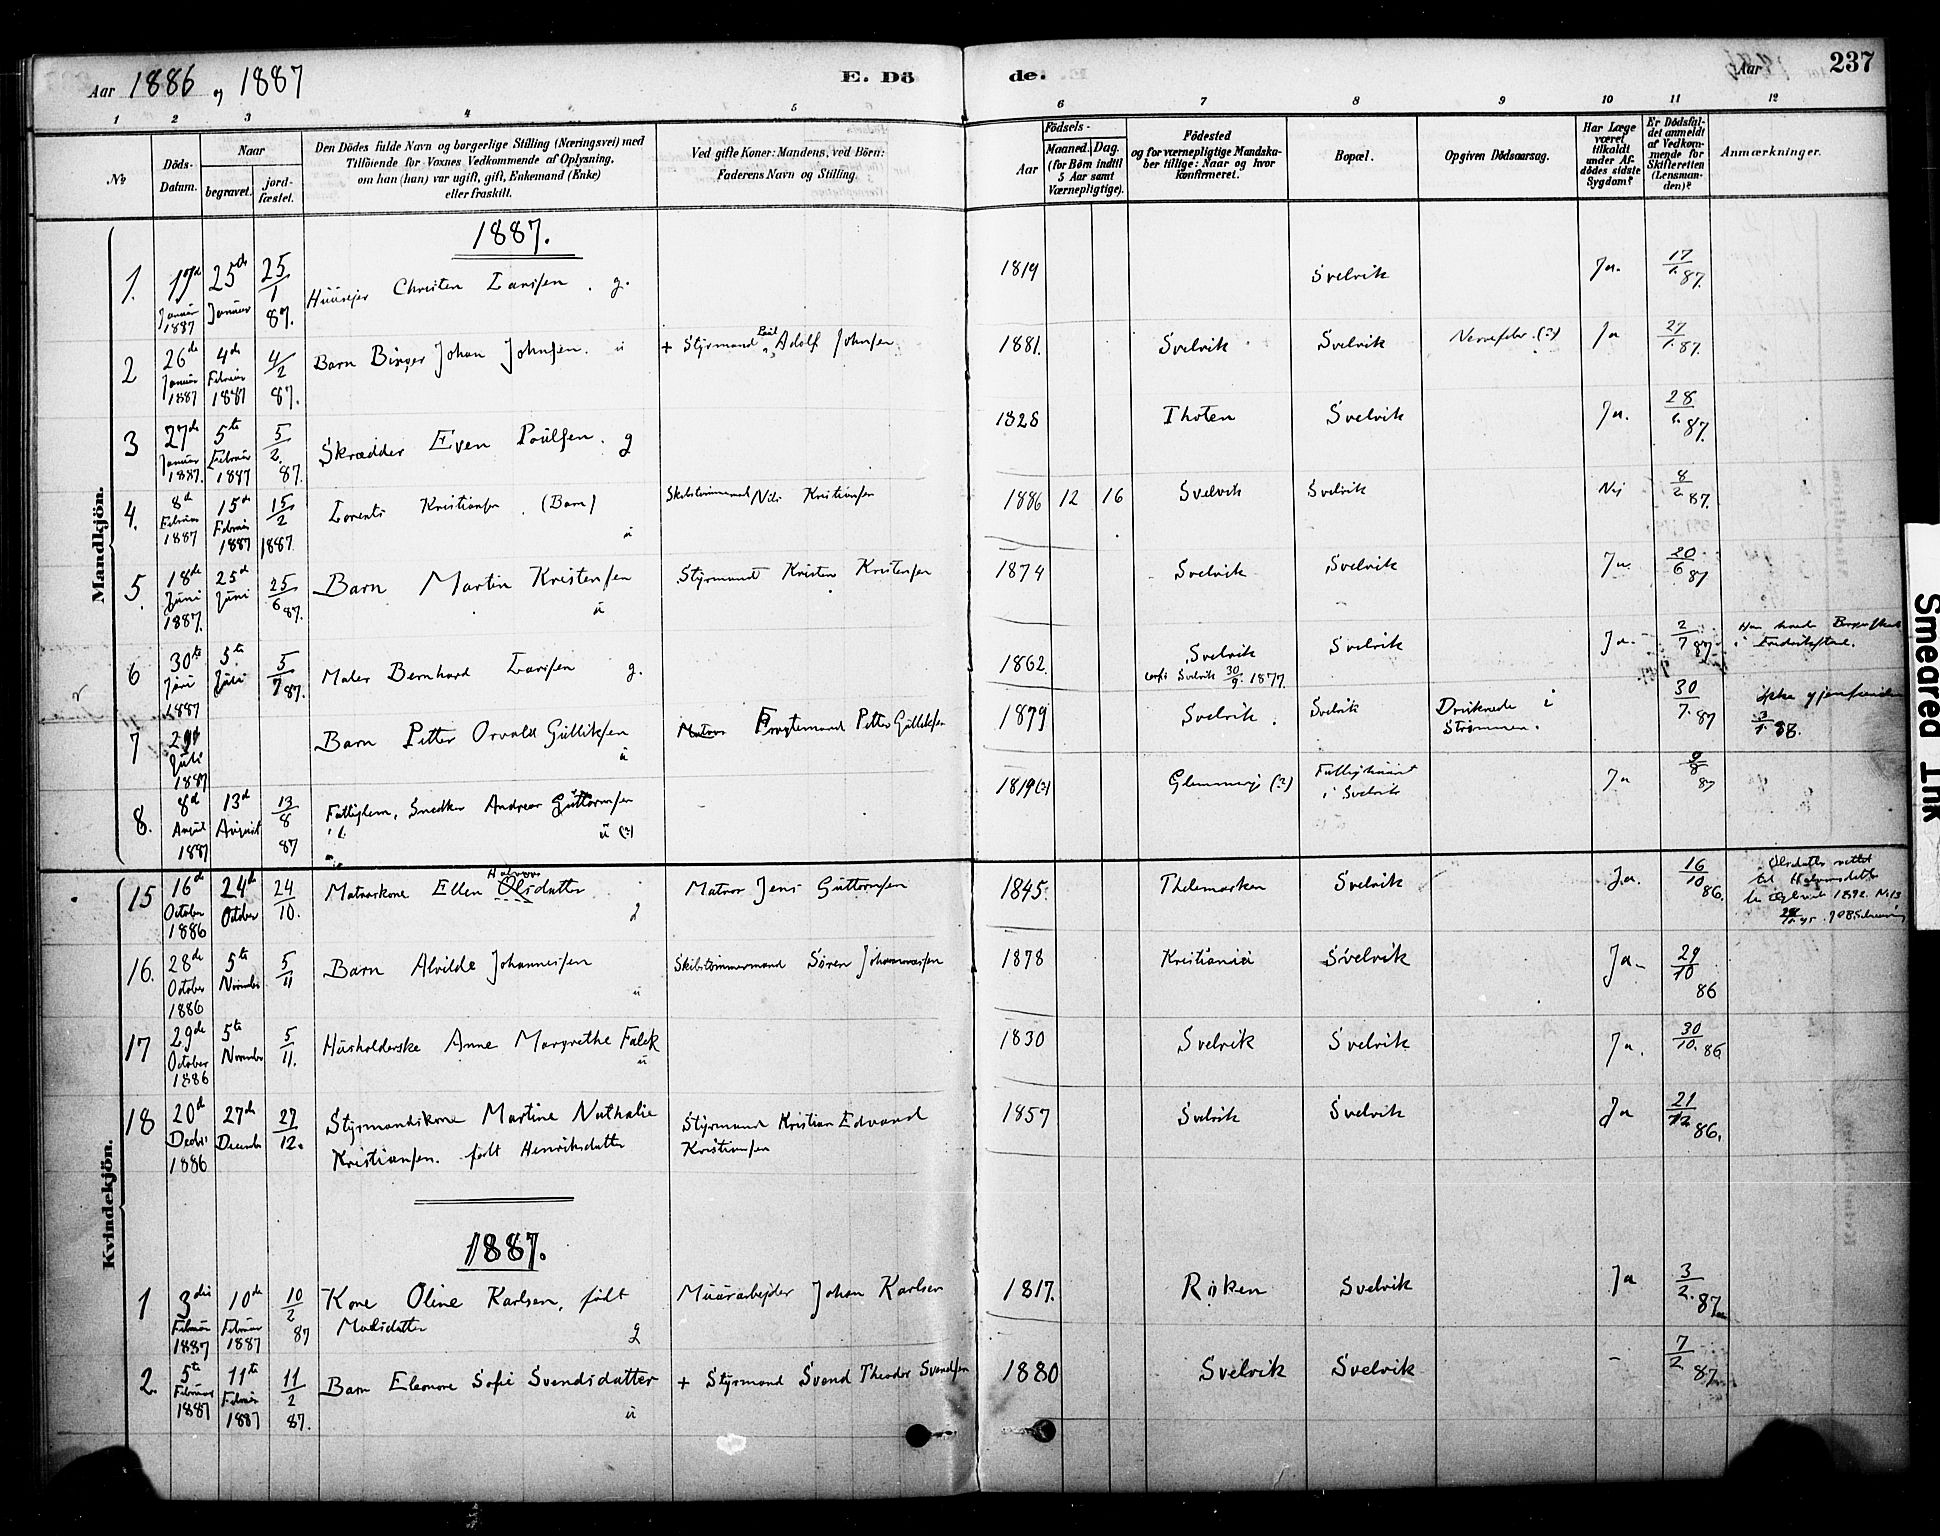 Aar 1886 og 1887
E. Dö
de.
Aar
237
1 2 3 4 5 6 7 8 9 10 11 12
No
Döds-Datum.
Naar
begravet.
jord-fæstet.
Den Dödes fulde Navn og borgerlige Stilling (Næringsvei) med
Tilföiende for Voxnes Vedkommende af Oplysning,
om han (hun) var ugift, gift, Enkemand (Enke)
eller fraskilt.
Ved gifte Koner: Mandens, ved Börn:
Faderens Navn og Stilling.
Födsels-
Aar
Maaned. Dag.
(for Börn indtil
5 Aar samt
Værnepligtige).
Födested
og for værnepligtige Mandska-
ber tillige: Naar og hvor
konfirmeret.
Bopæl.
Opgiven Dödsaarsag.
Har Læge
været
tilkaldt
under Af-
dödes sidste
Sygdom?
Er Dödsfal-
det anmeldt
af Vedkom-
mende for
Skifteretten
(Lensman-
den)?
Anmærkninger.
Mandkjön.
1887.
1. 17de Januar 1887 25de Januar 25/1 87. Huusejer Christen Larssen. g. 1819 Svelvik Ja. 17/1. 87.
2 26de Januar 1887 4de Februar 1887 4/2 87. Barn Birger Johan Johnsen. u + Styrmand Paul Adolf Johnsen 1881. Svelvik Svelvik Nervefeber (?) Ja 27/1. 87.
3 27de Januar 1887. 5te Februar 1887 5/2. 87. Skrædder Even Poulsen. g 1828 Thoten Svelvik Ja. 28/1. 87.
4. 8de Februar 1887 15de Februar 1887 15/2 1887 Lorents Kristiansen. (Barn) u Skibstømmermand Nils Kristiansen 1886 12 16 Svelvik Svelvik Nej 8/2. 87.
5. 18de Juni 1887. 25de Juni 25/6 87. Barn Martin Kristensen u Styrmand Kristen Kristensen 1874 Svelvik Svelvik Ja 20/6 87
6 30te Juni 1887 5te Juli 5/7 87. Maler Bernhard Larssen g. 1862. Svelvik
conf. Svelvik 30/9. 1877. Svelvik Ja. 2/7 87. Han havde Borgerskab
i Fredrikstad.
7 29de Juli 1887 Barn Petter Orvald Gulliksen u Matros Fragtemand Petter Gulliksen 1879 Svelvik. Svelvik Druknede i
Strømmen. 30/7. 87 ikke gjenfunden
3/1. 88.
8. 8de August 1887 13de August 13/8 87 Fattiglem, Snedker Andreas Guttormsen u (?) 1819(?) Glemminge (?) Fattighuset
i Svelvik Ja 9/8 87
Kvindekjön.
15 16de October 1886 24de October 24/10. Matroskone Ellen Halvors Olsdatter g Matros Jens Guttormsen 1845. Thelemarken Svelvik Ja. 16/10 86. Olsdatter rettet
til Halvorsdatter
16. 28de October 1886 5te November 5/11 Barn Alvilde Johannessen u Skibstømmermand Søren Johannessen 1878 Kristiania Svelvik Ja 29/10 86
17 29de October 1886 5te November 5/11. Husholderske Anne Margrethe Falck u 1830 Svelvik Svelvik Ja. 30/10. 86
18 20de Decbr 1886 27de December 27/12. Styrmandskone Martine Nathalie
Kristiansen. født Henriksdatter Styrmand Kristian Edvard
Kristiansen 1857 Svelvik Svelvik Ja 21/12 86.
1887.
1 3die Februar 1887 10de Februar 1887 10/2 87 Kone Oline Karlsen, født
Madsdatter g Muurarbejder Johan Karlsen 1817. Røken Svelvik Ja 3/2. 87
2. 5te Februar 1887 11te Februar 1887 11/2 87. Barn Eleonore Sofie Svendsdatter u + Styrmand Svend Theodor Svendsen 1880 Svelvik Svelvik - 7/2 87
Smeared Ink